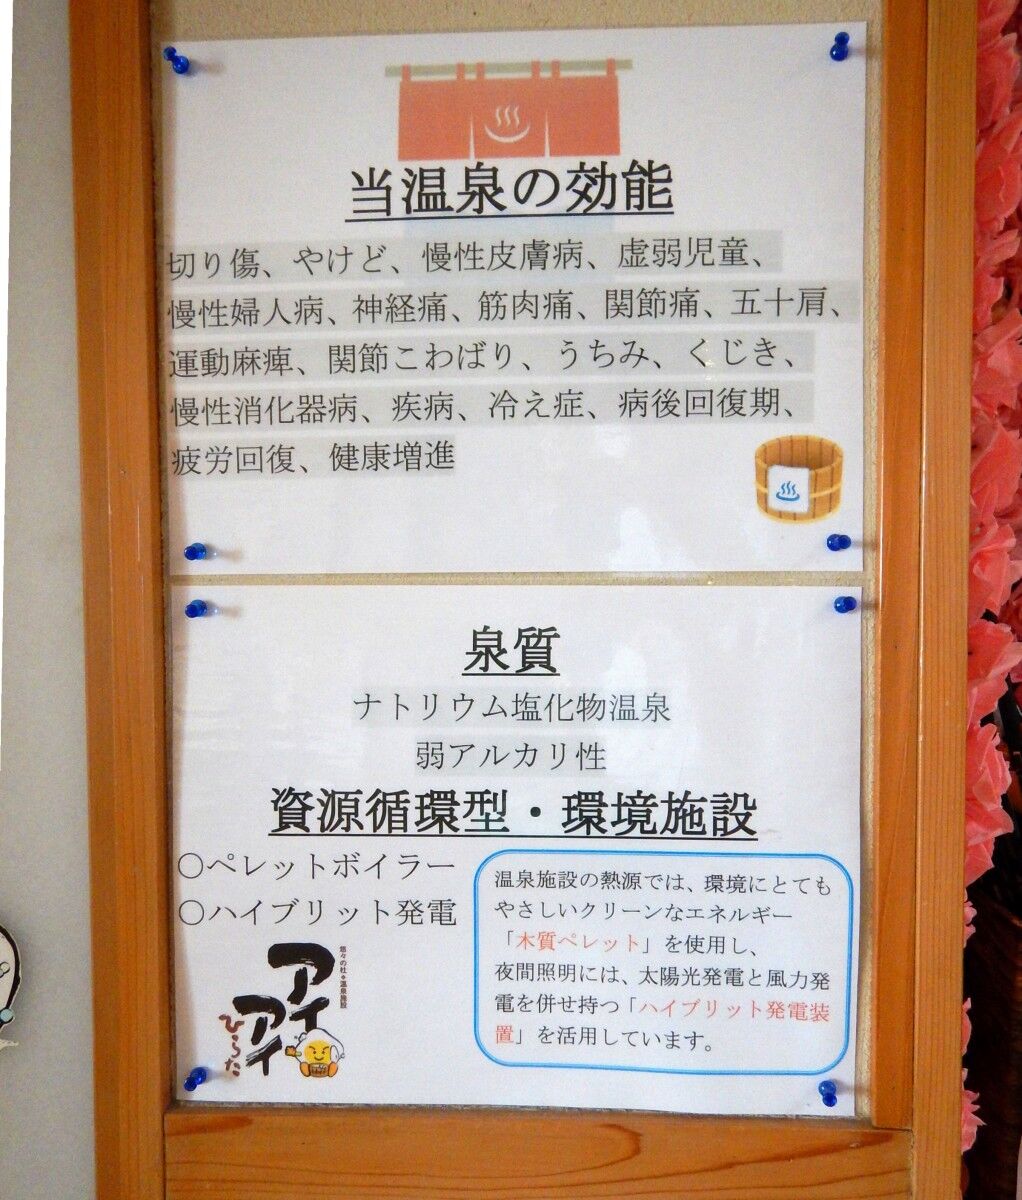 当温泉の効能
切り傷、やけど、慢性皮膚病、虚弱児童、
慢性婦人病、神経痛、筋肉痛、関節痛、五十肩、
運動麻痺、関節こわばり、うちみ、くじき、
慢性消化器病、疾病、冷え症、病後回復期、
疲労回復、健康増進
泉質
ナトリウム塩化物温泉
弱アルカリ性
資源循環型・環境施設
〇ペレットボイラー
〇ハイブリット発電
温泉施設の熱源では、環境にとても
やさしいクリーンなエネルギー
「木質ペレット」を使用し、
夜間照明には、太陽光発電と風力発
電を併せ持つ「ハイブリット発電装
置」を活用しています。
悠々の杜◆温泉施設
アイ
アイ
ひらた